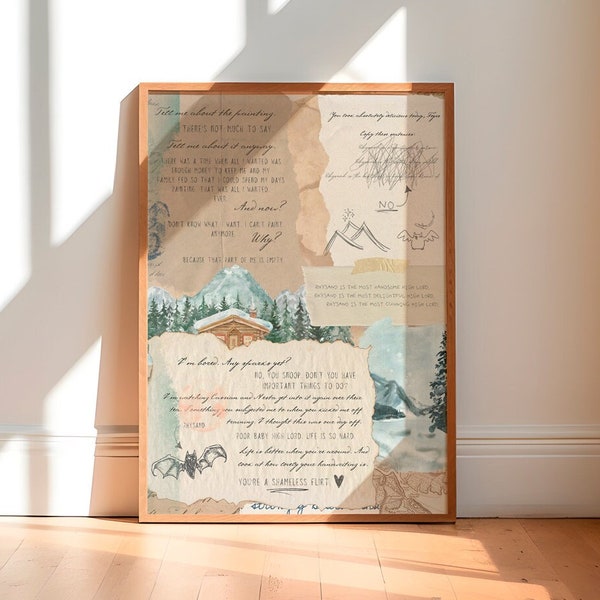 Tell me about the painting.
THERE'S NOT MUCH TO SAY.
Tell me about it anyway.
THERE WAS A TIME WHEN ALL I WANTED WAS
ENOUGH MONEY TO KEEP ME AND MY
FAMILY FED SO THAT I COULD SPEND MY DAYS
PAINTING. THAT WAS ALL I WANTED.
EVER.
And now?
I DON'T KNOW WHAT I WANT. I CAN'T PAINT
ANYMORE.
Why?
BECAUSE THAT PART OF ME IS EMPTY.
You look absolutely delicious today, Feyre
Copy these sentences:
NO
RHYSAND IS THE MOST HANDSOME HIGH LORD
RHYSAND IS THE MOST DELIGHTFUL HIGH LORD
RHYSAND IS THE MOST CUNNING HIGH LORD
I'm bored. Any sparks yet?
NO, YOU SNOOP. DON'T YOU HAVE
IMPORTANT THINGS TO DO?
I'm watching Cassian and Nesta get into it again over their
tea. Something you subjected me to when you kicked me off
training. I thought this was our day off.
POOR BABY HIGH LORD. LIFE IS SO HARD.
RHYSAND
Life is better when you're around. And
look at how lovely your handwriting is.
YOU'RE A SHAMELESS FLIRT.